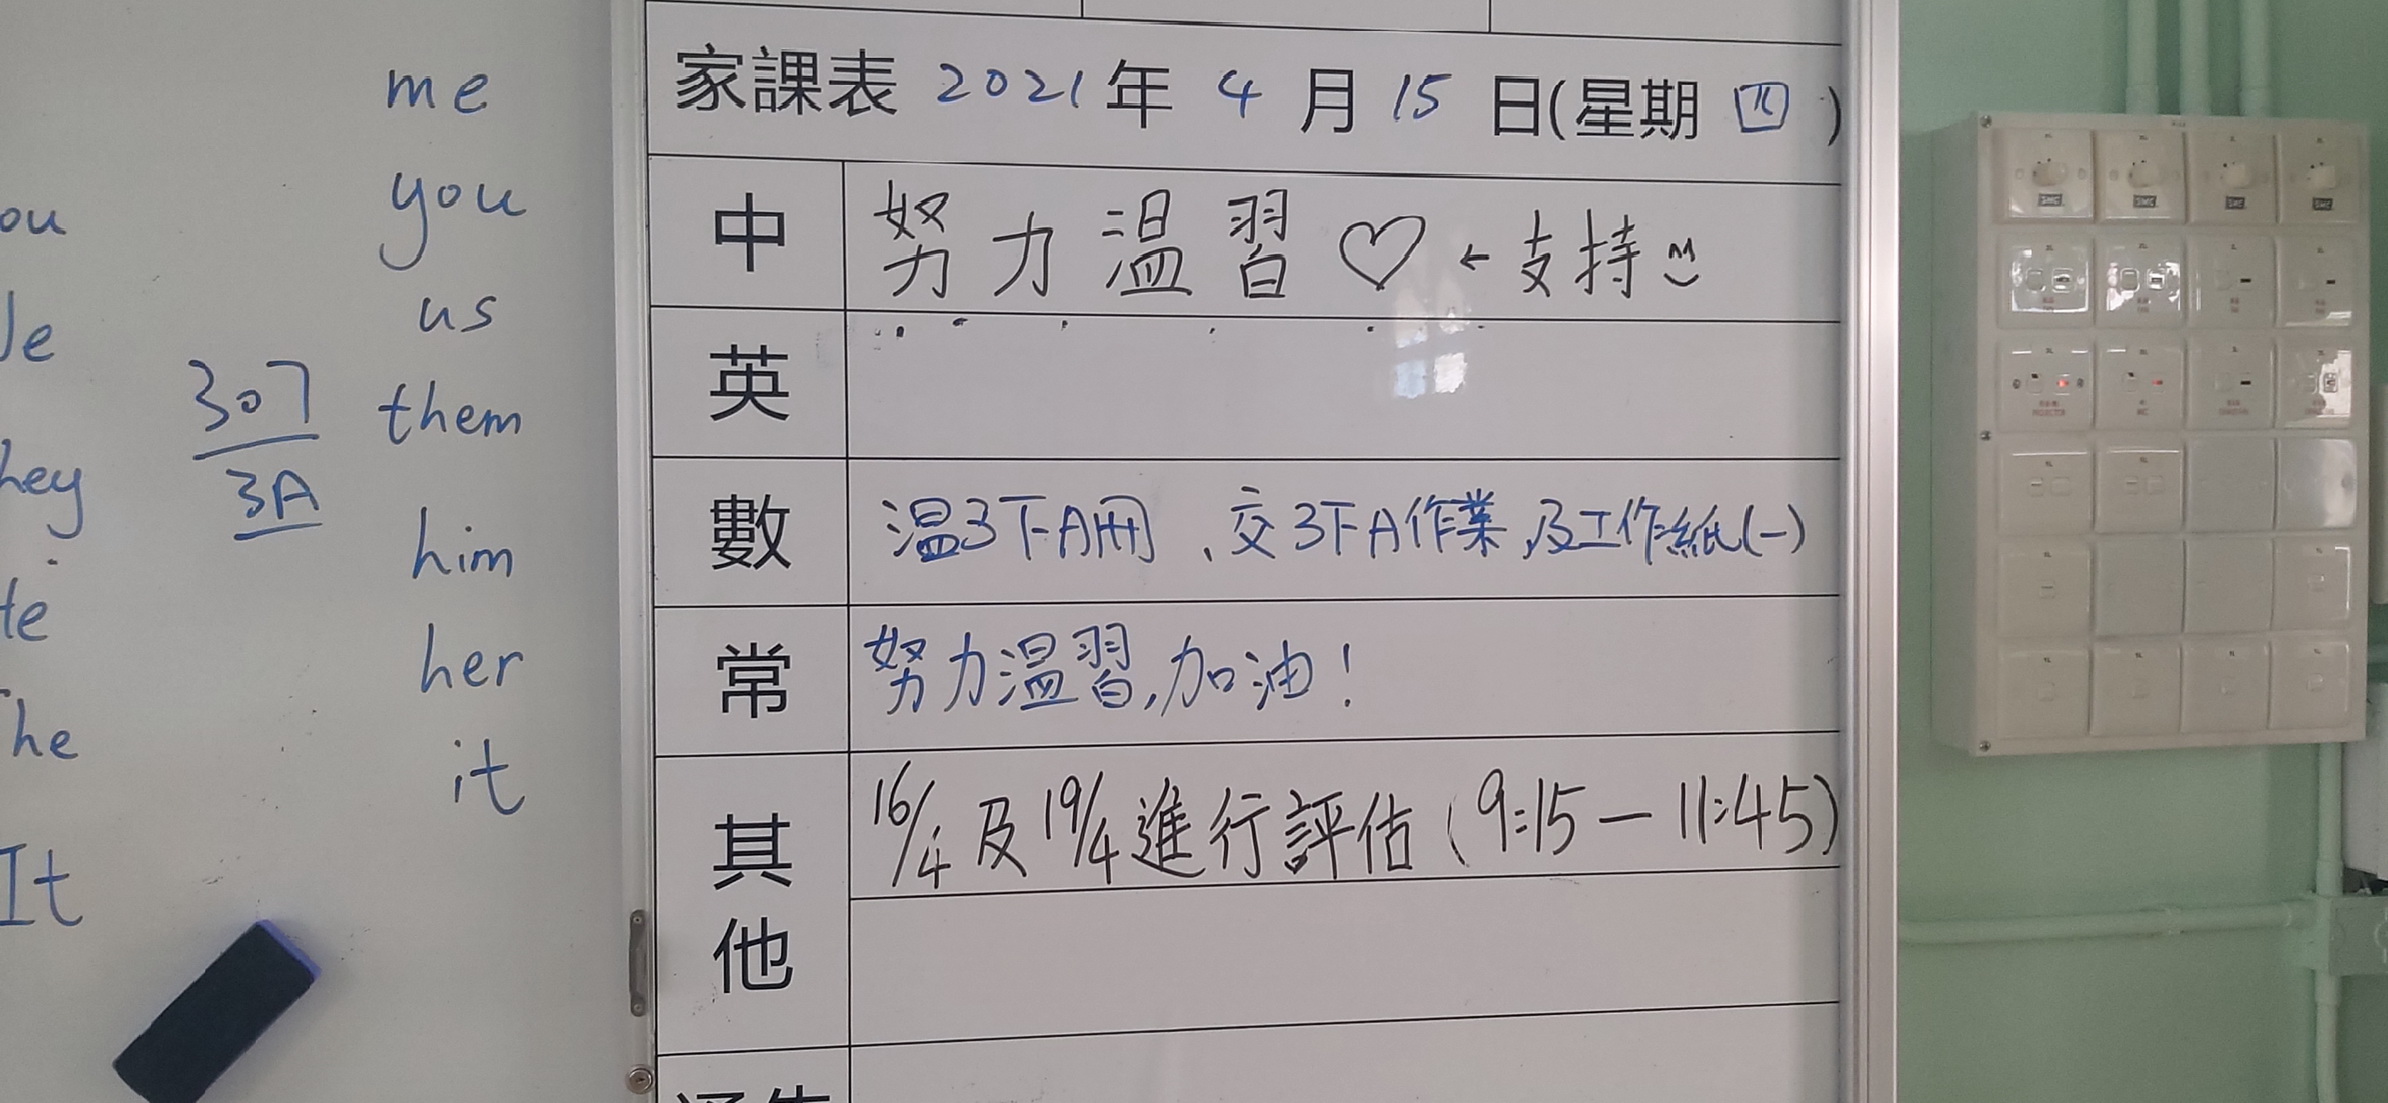 me
you
us
them
him
her
it
ou
hey
he
It
307
3A
家課表 2021年 4月 15日(星期四)
中 努力溫習♡←支持
英
數 温3下A冊、交3下A作業,及工作紙(一)
常 努力溫習,加油!
其他 16/4及19/4進行評估(9:15－11:45)